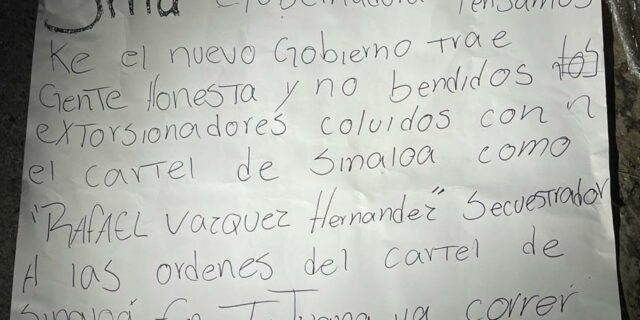 Gobernadora Pensamos
Ke el nuevo Gobierno trae
Gente Honesta y no bendidos
extorsionadores coluidos con
el cartel de Sinaloa como
"RAFAEL Vazquez Hernandez" Secuestrador
A las ordenes del cartel de
En Tijuana va correr